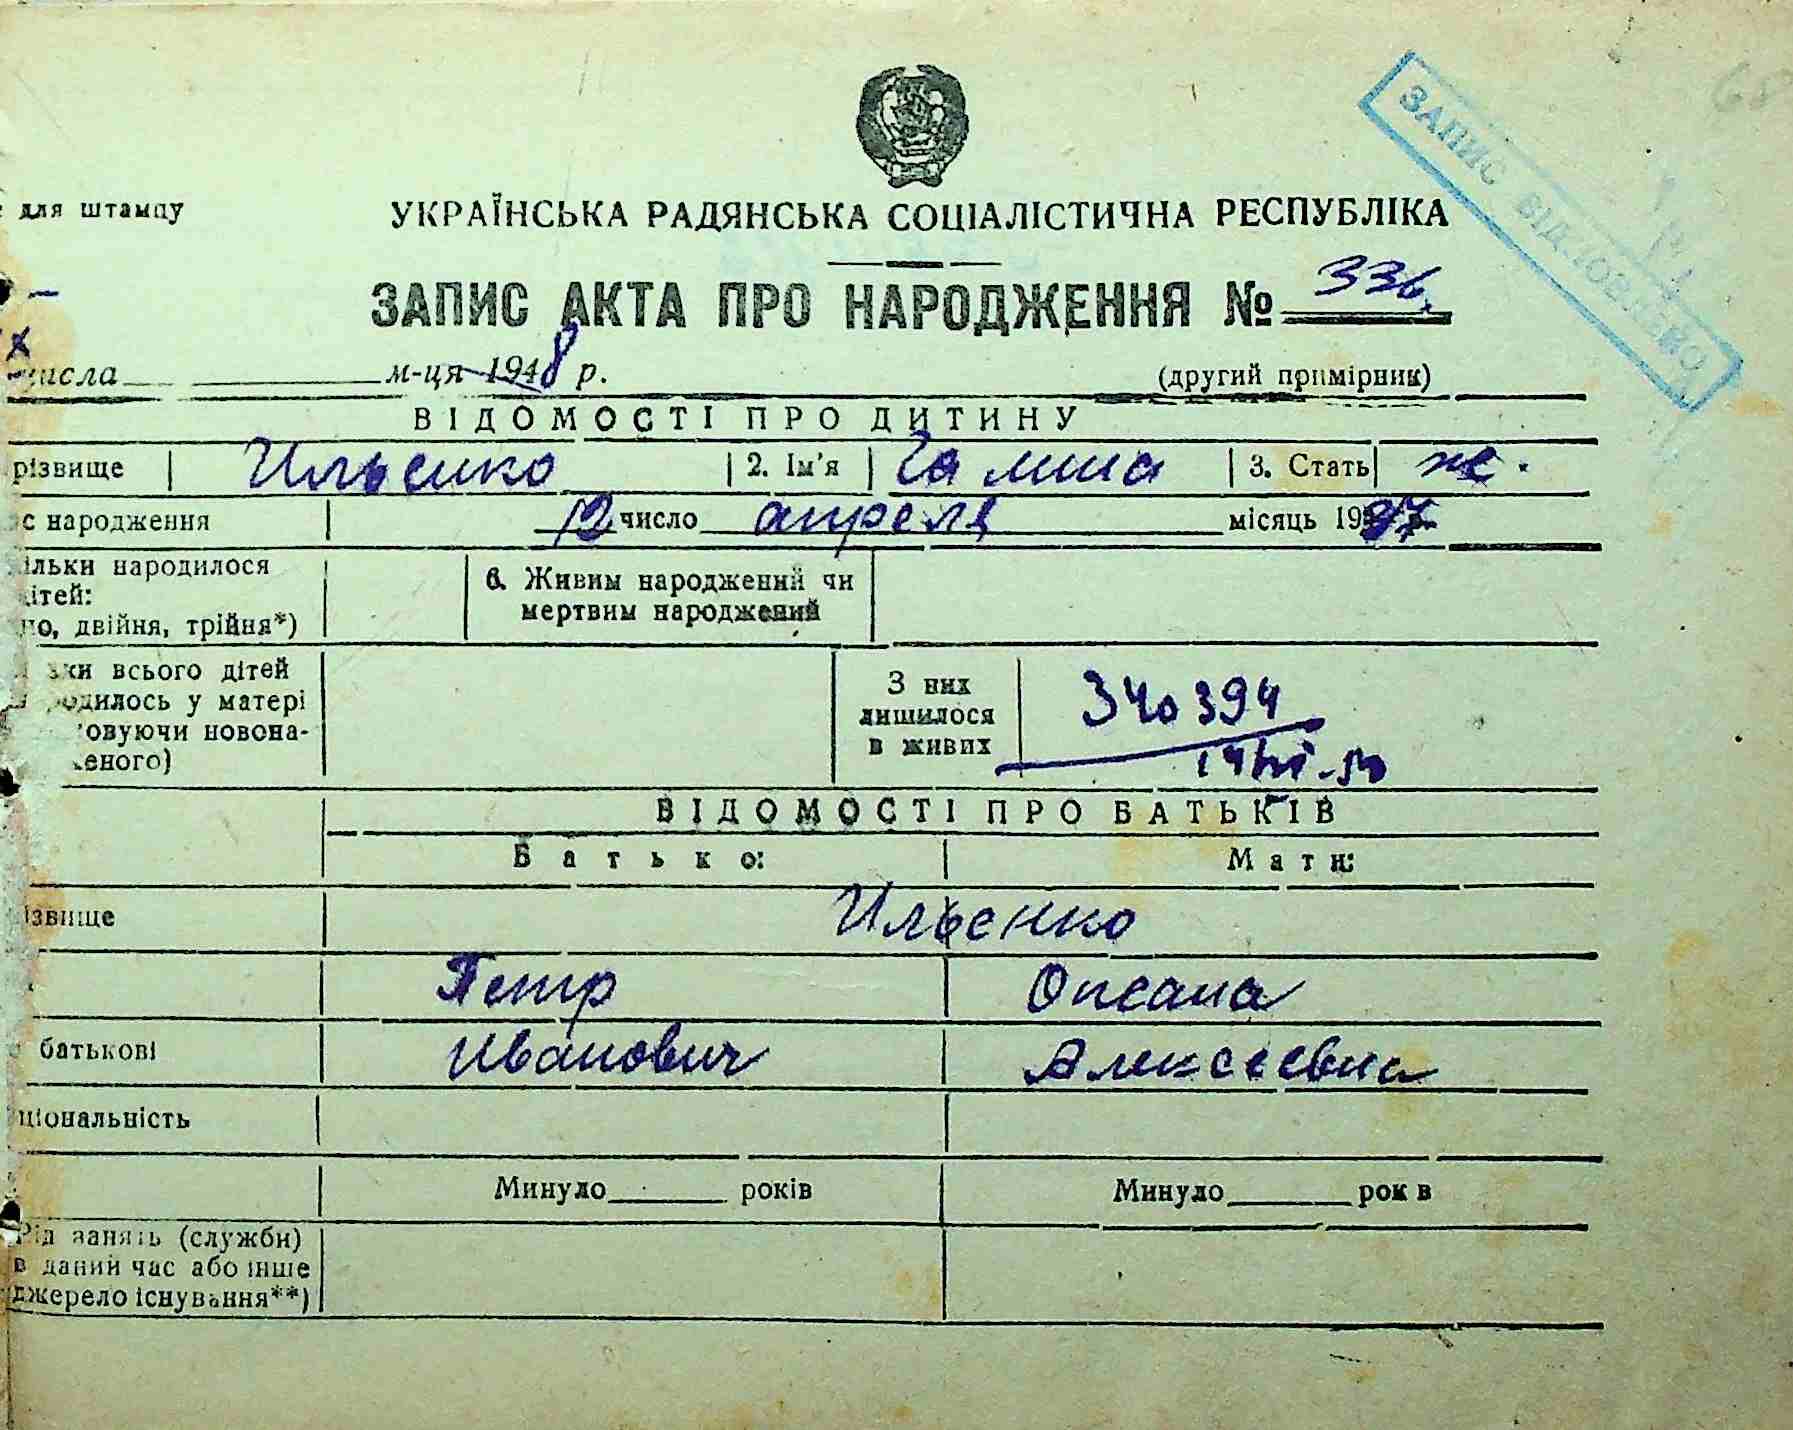 68
ЗАПИС ВІДНОВЛЕНО
для штампу
УКРАЇНСЬКА РАДЯНСЬКА СОЦІАЛІСТИЧНА РЕСПУБЛІКА
ЗАПИС АКТА ПРО НАРОДЖЕННЯ № 336
числа м-ця 1948 р. (другий примірник)
ВІДОМОСТІ ПРО ДИТИНУ
різвище Ильенко 2. Ім'я Галина 3. Стать ж.
с народження 12 число апреля місяць 1937
ільки народилося дітей: но, двійня, трійня*) 6. Живим народжений чи мертвим народжений
ки всього дітей родилось у матері овуючи новона- женого) З них лишилося в живих 340394
ВІДОМОСТІ ПРО БАТЬКІВ
Батько: Мати:
ізвище Ильенко
Петр Оксана
батькові Иванович Алексеевна
ціональність
Минуло років Минуло рок в
Рід занять (служби) в даний час або інше джерело існування**)